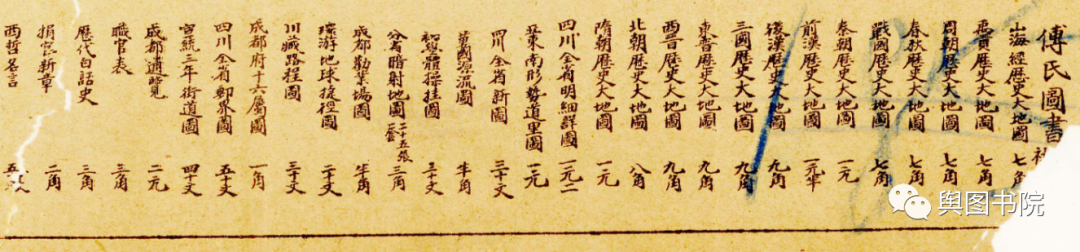 傅氏圖書社
山海經歷史大地圖 七角
禹貢歷史大地圖 七角
周朝歷史大地圖 七角
春秋歷史大地圖 七角
戰國歷史大地圖 七角
秦朝歷史大地圖 一元
前漢歷史大地圖 一元半
後漢歷史大地圖 九角
三國歷史大地圖 九角
東晉歷史大地圖 九角
西晉歷史大地圖 九角
北朝歷史大地圖 八角
隋朝歷史大地圖 一元
四川全省明細詳圖 一元二
亞東南形勢道里圖 一元
四川全省新圖 三十文
萬國源流圖 半角
初學體操掛圖 三十文
分省暗射地圖 二十五張一套 三角
成都勸業場圖 半角
環游地球捷徑圖 二十文
川藏路程圖 三十文
成都府十六屬圖 一角
四川全省郵界圖 五十文
宣統三年街道圖 四十文
成都通覽 二元
職官表 三角
歷代白話史 三角
捐宮新章 二角
西哲名言 五
舆图书院